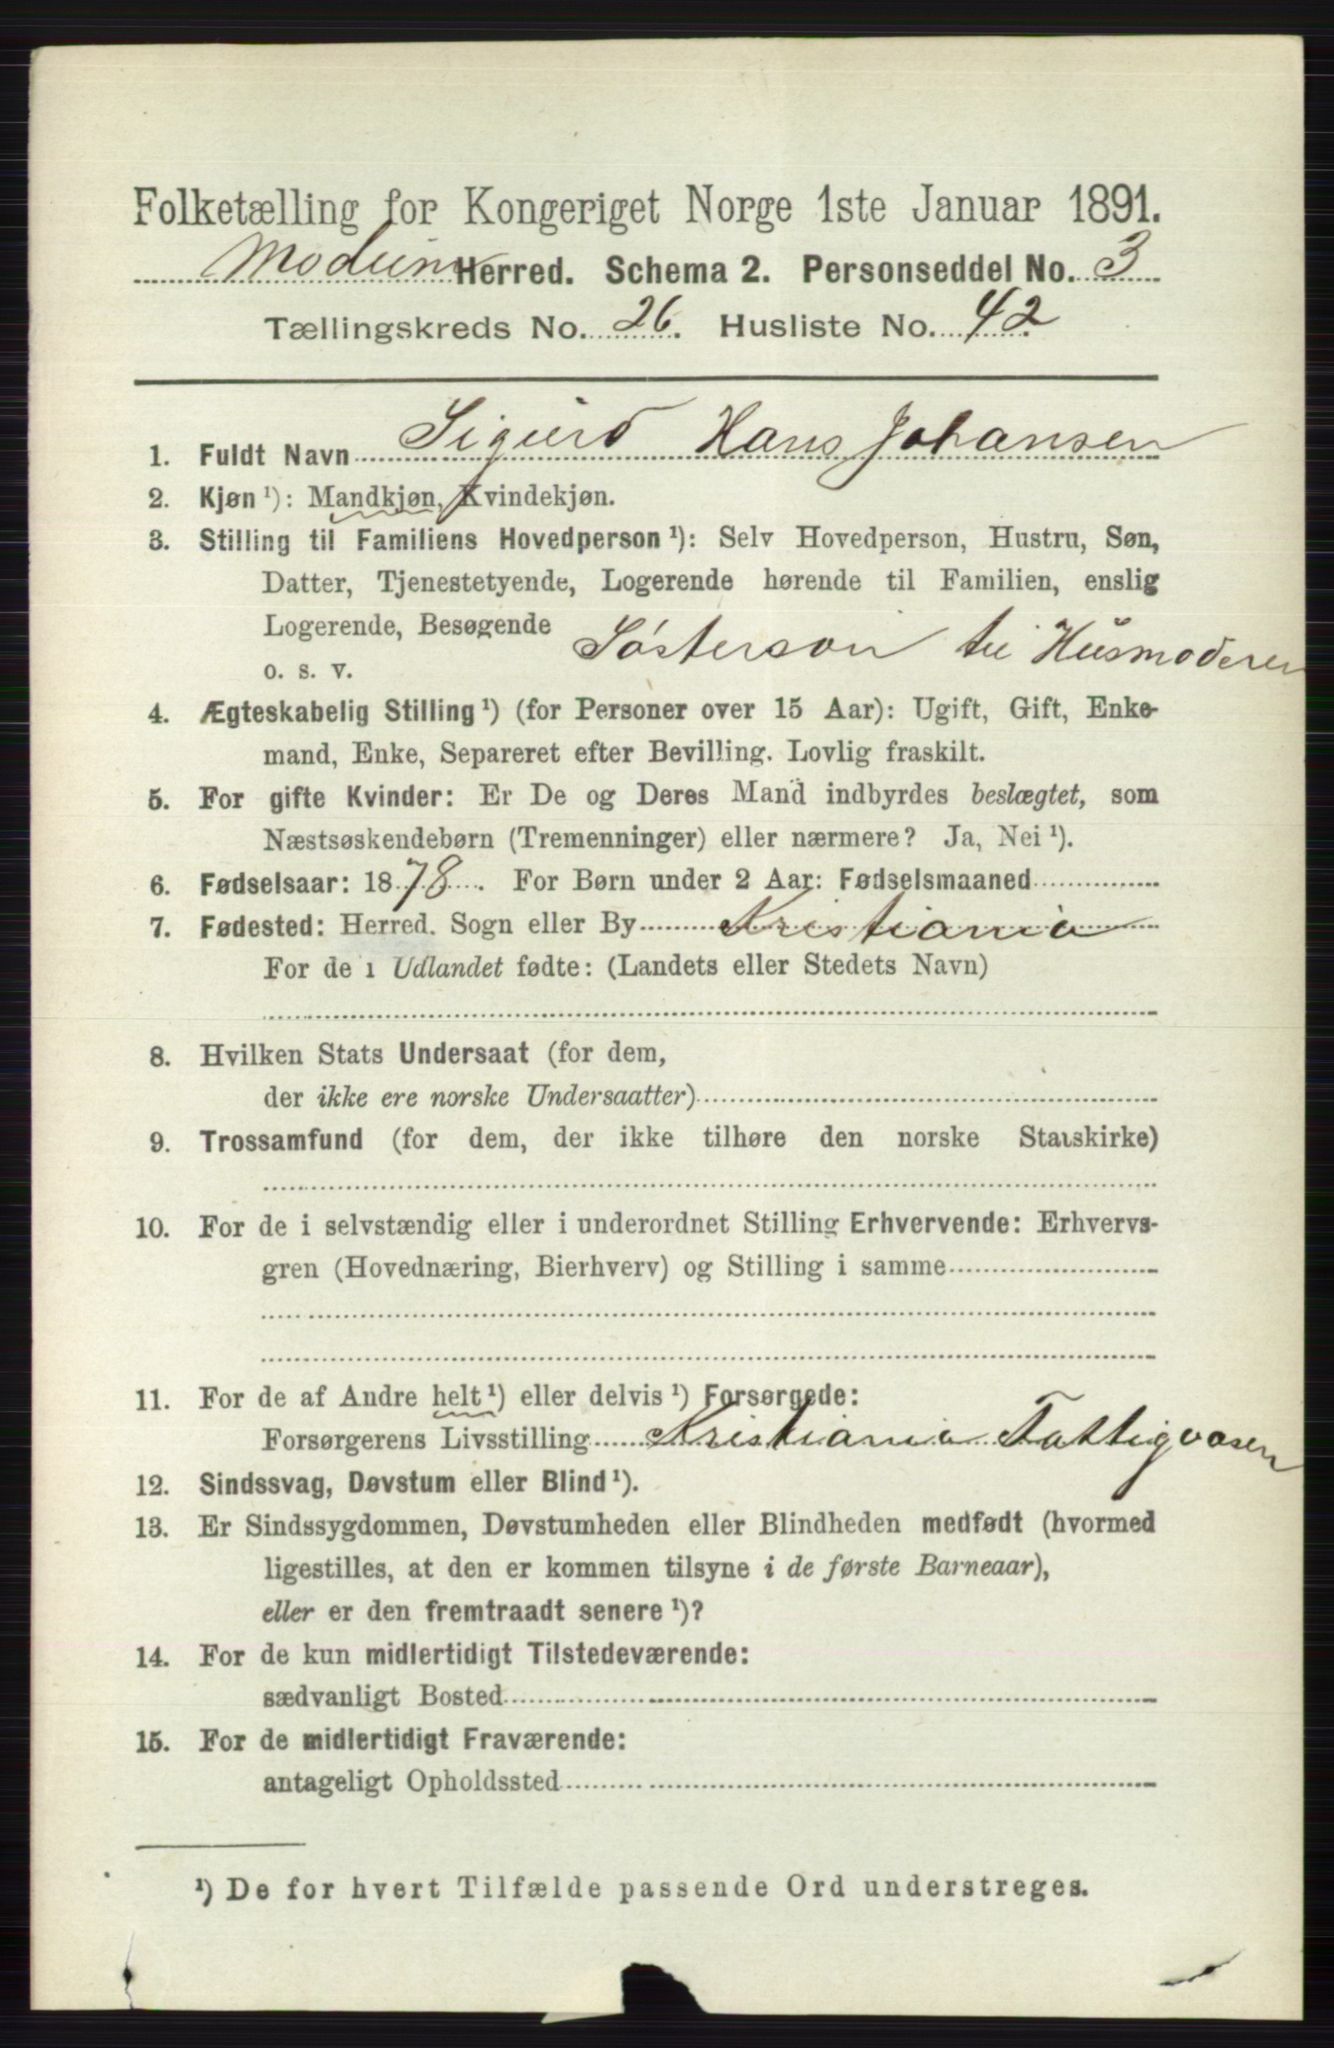 Folketælling for Kongeriget Norge 1ste Januar 1891.
Modum Herred. Schema 2. Personseddel No. 3
Tællingskreds No. 26. Husliste No. 42
1. Fuldt Navn Sigurd Hans Johansen
2. Kjøn ¹): Mandkjøn, Kvindekjøn.
3. Stilling til Familiens Hovedperson ¹): Selv Hovedperson, Hustru, Søn,
Datter, Tjenestetyende, Logerende hørende til Familien, enslig
Logerende, Besøgende
o. s. v. Søsterson til Husmoderen
4. Ægteskabelig Stilling ¹) (for Personer over 15 Aar): Ugift, Gift, Enke-
mand, Enke, Separeret efter Bevilling. Lovlig fraskilt.
5. For gifte Kvinder: Er De og Deres Mand indbyrdes beslægtet, som
Næstsøskendebørn (Tremenninger) eller nærmere? Ja, Nei ¹).
6. Fødselsaar: 1878. For Børn under 2 Aar: Fødselsmaaned
7. Fødested: Herred. Sogn eller By Kristiania
For de i Udlandet fødte: (Landets eller Stedets Navn)
8. Hvilken Stats Undersaat (for dem,
der ikke ere norske Undersaatter)
9. Trossamfund (for dem, der ikke tilhøre den norske Statskirke)
10. For de i selvstændig eller i underordnet Stilling Erhvervende: Erhvervs-
gren (Hovednæring, Bierhverv) og Stilling i samme
11. For de af Andre helt ¹) eller delvis ¹) Forsørgede:
Forsørgerens Livsstilling Kristiania Fattigvæsen
12. Sindssvag, Døvstum eller Blind ¹).
13. Er Sindssygdommen, Døvstumheden eller Blindheden medfødt (hvormed
ligestilles, at den er kommen tilsyne i de første Barneaar),
eller er den fremtraadt senere ¹)?
14. For de kun midlertidigt Tilstedeværende:
sædvanligt Bosted
15. For de midlertidigt Fraværende:
antageligt Opholdssted
¹) De for hvert Tilfælde passende Ord understreges.